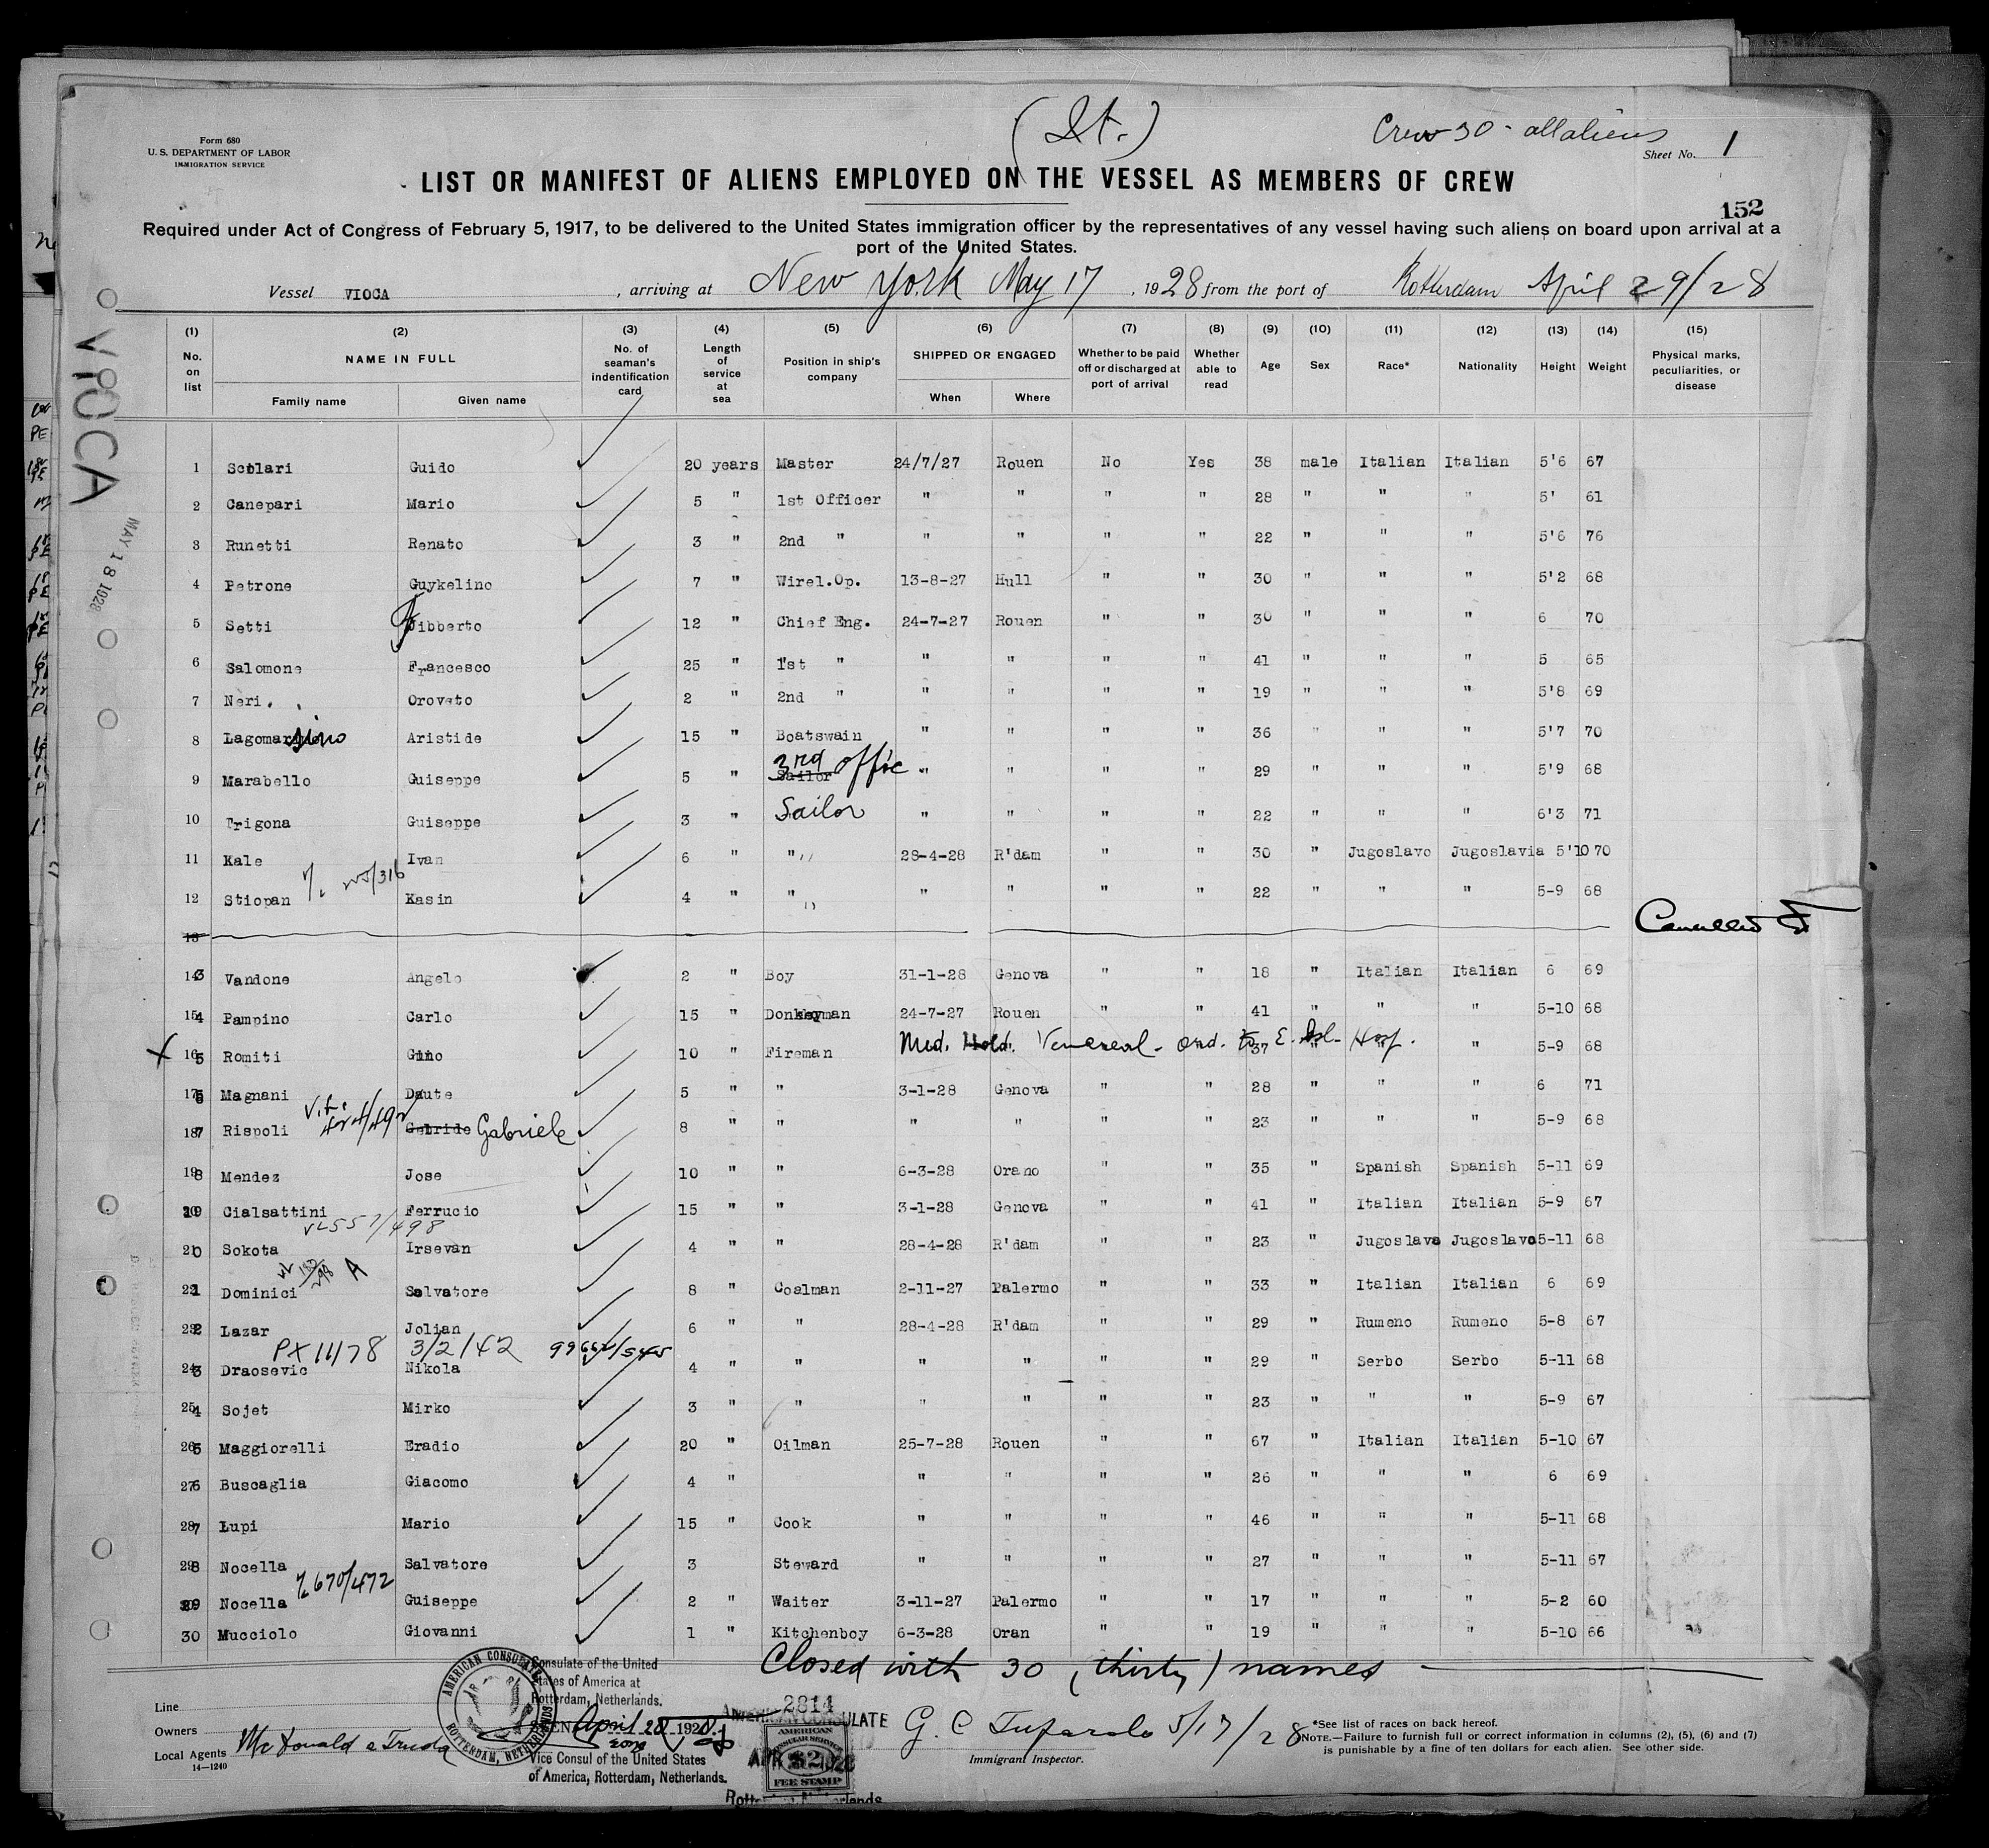 (It.)
Crew 30 - all aliens
Form 680
U. S. DEPARTMENT OF LABOR
IMMIGRATION SERVICE
Sheet No. 1
LIST OR MANIFEST OF ALIENS EMPLOYED ON THE VESSEL AS MEMBERS OF CREW
152
Required under Act of Congress of February 5, 1917, to be delivered to the United States immigration officer by the representatives of any vessel having such aliens on board upon arrival at a
port of the United States.
Vessel VIOCA, arriving at New York May 17, 1928 from the port of Rotterdam April 29/28
VIOCA
MAY 18 1928
(1) (2) (3) (4) (5) (6) (7) (8) (9) (10) (11) (12) (13) (14) (15)
No. on list NAME IN FULL Family name Given name No. of seaman's indentification card Length of service at sea Position in ship's company SHIPPED OR ENGAGED When Where Whether to be paid off or discharged at port of arrival Whether able to read Age Sex Race* Nationality Height Weight Physical marks, peculiarities, or disease
1 Scolari Guido 20 years Master 24/7/27 Rouen No Yes 38 male Italian Italian 5'6 67
2 Canepari Mario 5 " 1st Officer " " " " 28 " " " 5' 61
3 Runetti Renato 3 " 2nd " " " " " 22 " " " 5'6 76
4 Petrone Guykelino 7 " Wirel.Op. 13-8-27 Hull " " 30 " " " 5'2 68
5 Setti Jibberto 12 " Chief Eng. 24-7-27 Rouen " " 30 " " " 6 70
6 Salomone Francesco 25 " 1st " " " " " 41 " " " 5 65
7 Neri. Oroveto 2 " 2nd " " " " " 19 " " " 5'8 69
8 Lagomarsino Aristide 15 " Boatswain " " " " 36 " " " 5'7 70
9 Marabello Guiseppe 5 " Sailor 3rd offic " " " " 29 " " " 5'9 68
10 Trigona Guiseppe 3 " Sailor " " " " 22 " " " 6'3 71
11 Kale Ivan 6 " " 28-4-28 R'dam " " 30 " Jugoslavo Jugoslavia 5'10 70
12 Stiopan Kasin 4 " " " " " " 22 " " " 5-9 68
13 Cancelled
143 Vandone Angelo 2 " Boy 31-1-28 Genova " " 18 " Italian Italian 6 69
154 Pampino Carlo 15 " Donkeyman 24-7-27 Rouen " " 41 " " " 5-10 68
X 165 Romiti Gino 10 " Fireman Med. Hold. Venereal - ord. to E. Isl. Hosp. 37 " 5-9 68
176 Magnani Daute 5 " " 3-1-28 Genova " " 28 " " " 6 71
187 Rispoli Gebride Gabriele 8 " " " " " " 23 " " " 5-9 68
198 Mendez Jose 10 " " 6-3-28 Orano " " 35 " Spanish Spanish 5-11 69
19 Cialsattini Ferrucio 15 " " 3-1-28 Genova " " 41 " Italian Italian 5-9 67
210 Sokota Irsevan 4 " " 28-4-28 R'dam " " 23 " Jugoslavo Jugoslavo 5-11 68
A
221 Dominici Salvatore 8 " Coalman 2-11-27 Palermo " " 33 " Italian Italian 6 69
232 Lazar Jolian 6 " " 28-4-28 R'dam " " 29 " Rumeno Rumeno 5-8 67
PX 11/78 3/2/42
243 Draosevic Nikola 4 " " " " " " 29 " Serbo Serbo 5-11 68
254 Sojet Mirko 3 " " " " " " 23 " " " 5-9 67
265 Maggiorelli Eradio 20 " Oilman 25-7-28 Rouen " " 67 " Italian Italian 5-10 67
276 Buscaglia Giacomo 4 " " " " " 26 " " " 6 69
287 Lupi Mario 15 " Cook " " " " 46 " " " 5-11 68
298 Nocella Salvatore 3 Steward " " " " 27 " " " 5-11 67
670/472
29 Nocella Guiseppe 2 " Waiter 3-11-27 Palermo " " 17 " " " 5-2 60
30 Mucciolo Giovanni 1 " Kitchenboy 6-3-28 Oran " " 19 " " " 5-10 66
Closed with 30 (thirty) names
AMERICAN CONSULATE ROTTERDAM, NETHERLANDS
Consulate of the United
States of America at
Rotterdam, Netherlands.
SEEN April 28 1928
Vice Consul of the United States
of America, Rotterdam, Netherlands.
2814
AMERICAN CONSULATE
AMERICAN CONSULAR SERVICE $2 FEE STAMP
Line
Owners
Local Agents
14—1240
5/17/28
Immigrant Inspector.
*See list of races on back hereof.
NOTE.—Failure to furnish full or correct information in columns (2), (5), (6) and (7)
is punishable by a fine of ten dollars for each alien. See other side.